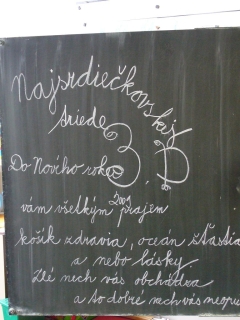 Najsrdiečkovskej
triede 3. D
Do Nového roka
2009
vám všetkým prajem
košík zdravia, oceán šťastia
a nebo lásky.
Zlé nech vás obchádza
a to dobré nech vás